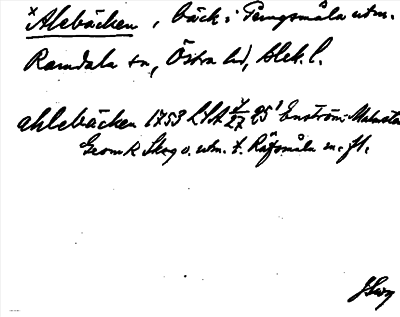 × Alebäcken, bäck i Pengsmåla utm.
Ramdala sn, Östra hd, Blek. l.
ahlebäcken 1753 LSA 25' Enström-Malmsten
Geom k Skog o. utm. t. Räfsmåla m. fl.